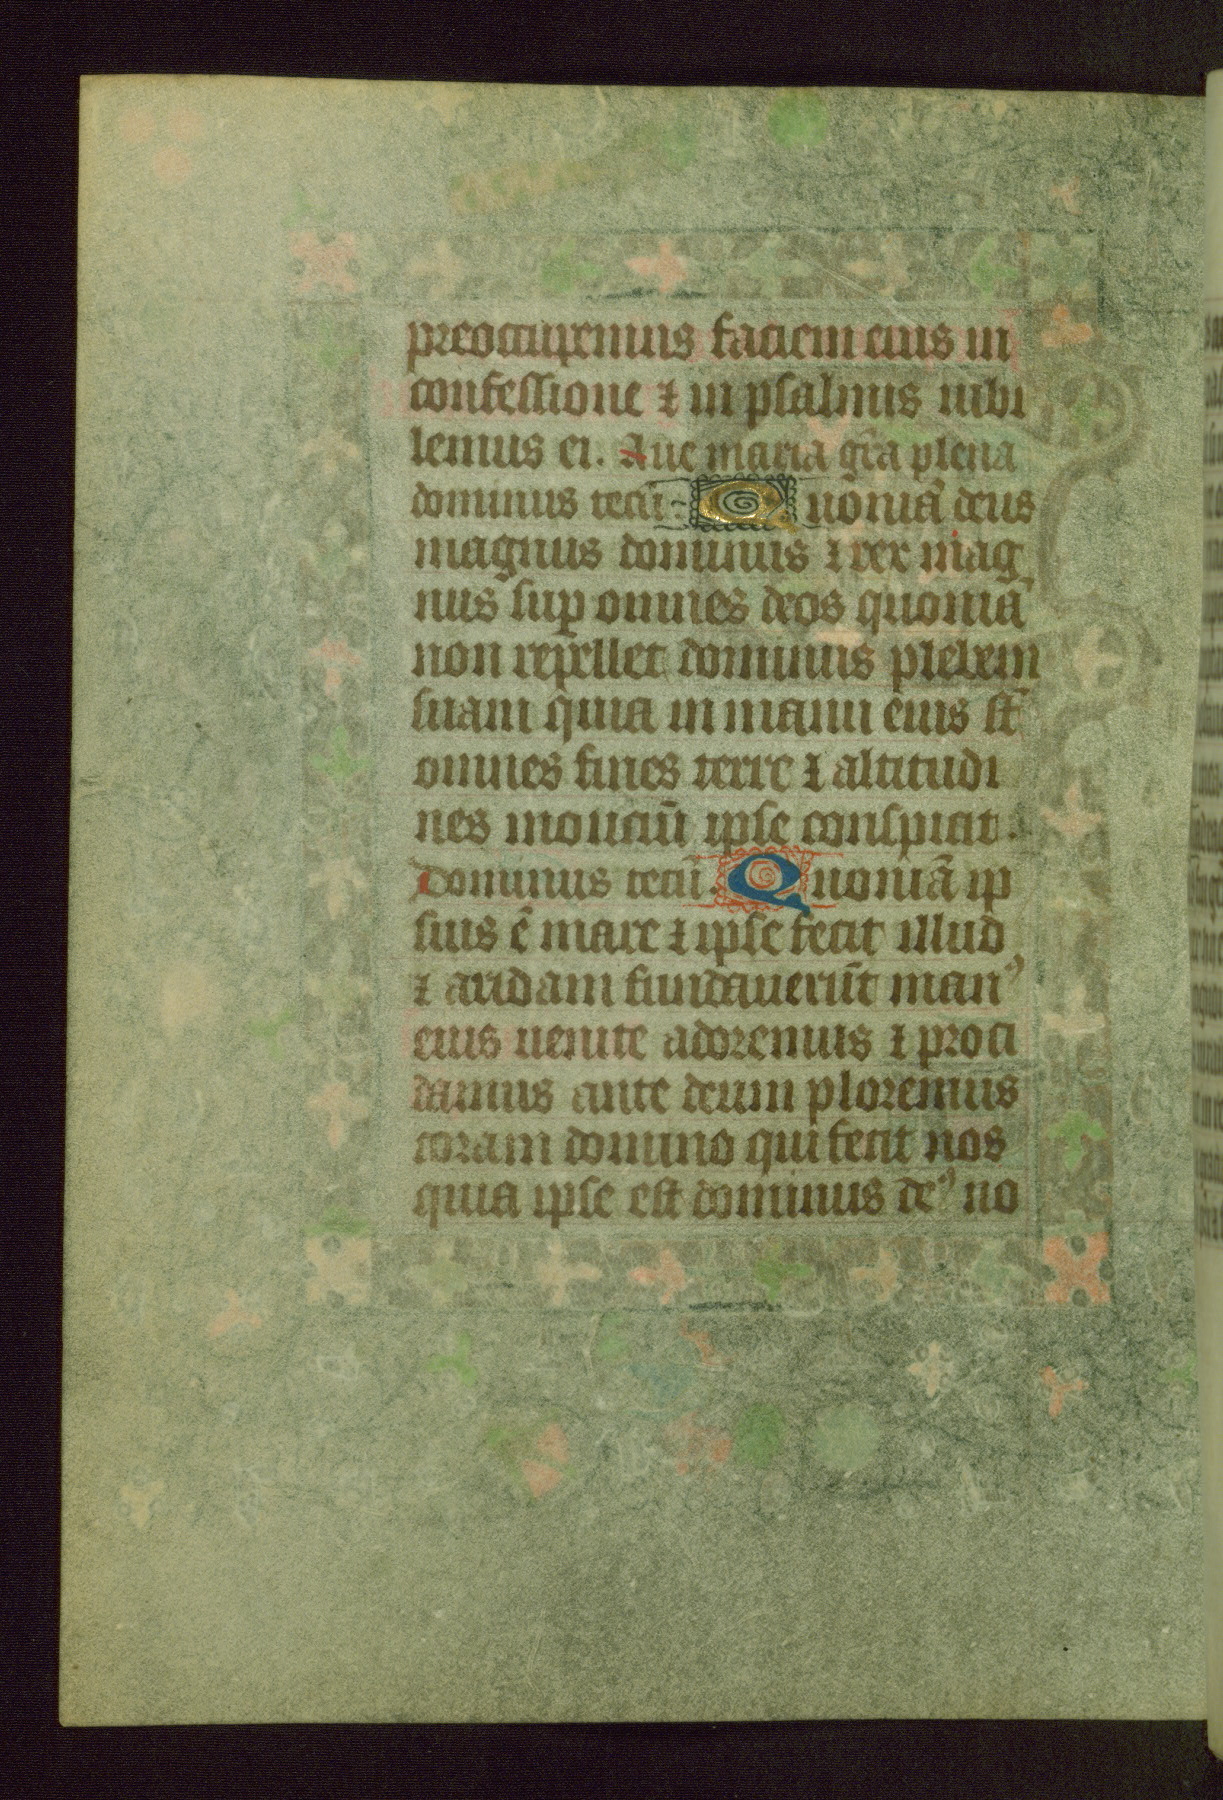 preoccupemus faciem eius in
confessione ⁊ in psalmis iubi
lemus ei. Aue maria gr̄a plena
dominus tecū. Quoniā deus
magnus dominus ⁊ rex mag
nus suꝑ omnes deos quoniā
non repellet dominus plebem
suam quia in manu eius sūt
omnes fines terre ⁊ altitudi
nes monciū ipse conspicit.
dominus tecū. Quoniā ip
sius ē mare ⁊ ipse fecit illud
⁊ aridam fundauerūt manꝰ
eius uenite adoremus ⁊ proci
damus ante deum ploremus
coram domino qui fecit nos
quia ipse est dominus deꝰ no